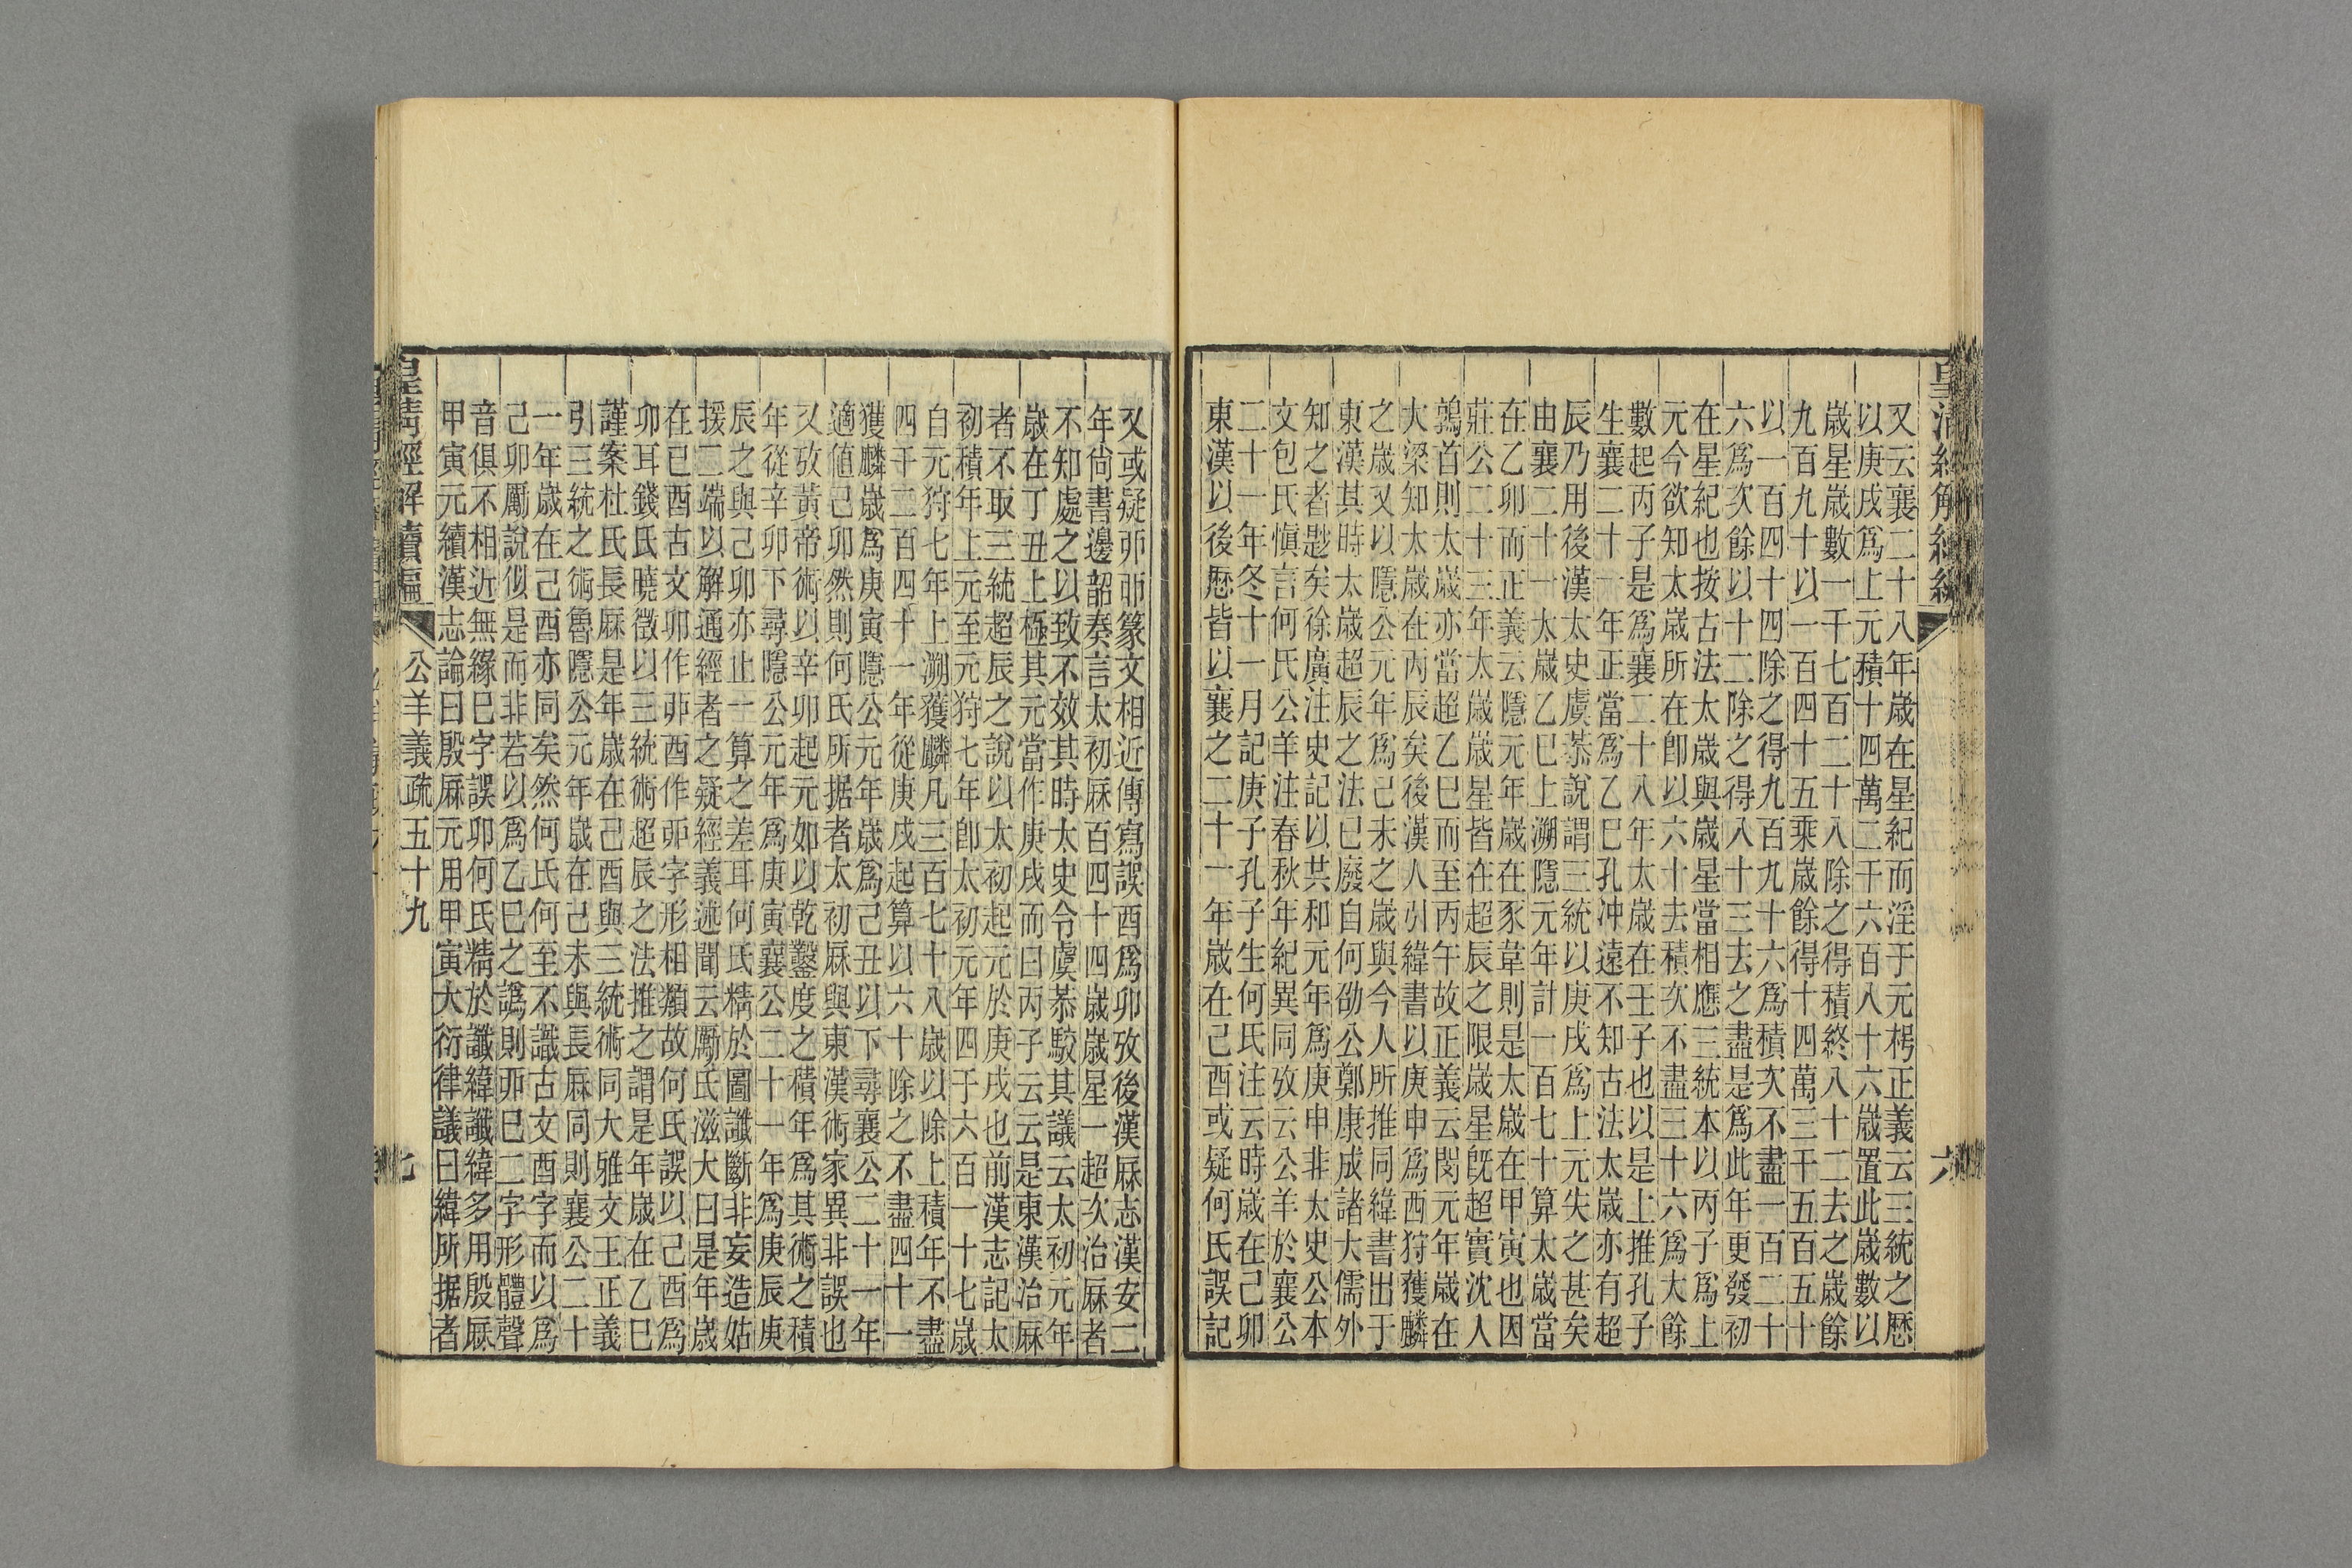 皇清經解續編
六
又云襄二十八年歲在星紀而淫于元枵正義云三統之歷
以庚戌爲上元積十四萬二千六百八十六歲置此歲數以
歲星歲數一千七百二十八除之得積終八十二去之歲餘
九百九十以一百四十五乘歲餘得十四萬三千五百五十
以一百四十四除之得九百九十六爲積次不盡一百二十
六爲次餘以十二除之得八十三去之盡是爲此年更發初
在星紀也按古法太歲與歲星當相應三統本以丙子爲上
元今欲知太歲所在卽以六十去積次不盡三十六爲大餘
數起丙子是爲襄二十八年太歲在壬子也以是上推孔子
生襄二十一年正當爲乙巳孔冲遠不知古法太歲亦有超
辰乃用後漢太史虞恭說謂三統以庚戌爲上元失之甚矣
由襄二十一太歲乙巳上溯隱元年計一百七十算太歲當
在乙卯而正義云隱元年歲在豕韋則是太歲在甲寅也因
莊公二十三年太歲歲星皆在超辰之限歲星旣超實沈人
鶉首則太歲亦當超乙巳而至丙午故正義云閔元年歲在
大梁知太歲在丙辰矣後漢人引緯書以庚申爲西狩獲麟
之歲又以隱公元年爲己未之歲與今人所推同緯書出于
東漢其時太歲超辰之法已廢自何劭公鄭康成諸大儒外
知之者尠矣徐廣注史記以共和元年爲庚申非太史公本
文包氏愼言何氏公羊注春秋年紀異同攷云公羊於襄公
二十一年冬十一月記庚子孔子生何氏注云時歲在己卯
東漢以後歷皆以襄之二十一年歲在己酉或疑何氏誤記
又或疑丣戼篆文相近傳寫誤酉爲卯攷後漢厤志漢安二
年尙書邊韶奏言太初厤百四十四歲歲星一超次治厤者
不知處之以致不效其時太史令虞恭駮其議云太初元年
歲在丁丑上極其元當作庚戌而曰丙子云云是東漢治厤
者不取三統超辰之說以太初起元於庚戌也前漢志記太
初積年上元至元狩七年卽太初元年四千六百一十七歲
白元狩七年上溯獲麟凡三百七十八歲以除上積年不盡
四千二百四十一年從庚戌起算以六十除之不盡四十一
獲麟歲爲庚寅隱公元年歲爲己丑以下尋襄公二十一年
適値己卯然則何氏所据者太初厤與東漢術家異非誤也
又攷黃帝術以辛卯起元如以乾鑿度之積年爲其術之積
年從辛卯下尋隱公元年爲庚寅襄公二十一年爲庚辰庚
辰之與己卯亦止一算之差耳何氏精於圖讖斷非妄造姑
援二端以解通經者之疑經義述聞云厲氏滋大曰是年歲
在已酉古文卯作丣酉作戼字形相類故何氏誤以己酉爲
卯耳錢氏曉徵以三統術超辰之法推之謂是年歲在乙巳
謹案杜氏長厤是年歲在己酉與三統術同大雅文王正義
引三統之術魯隱公元年歲在己未與長厤同則襄公二十
一年歲在己酉亦同矣然何氏何至不識古文酉字而以爲
己卯厲說似是而非若以爲乙巳之譌則丣巳二字形體聲
音俱不相近無緣巳字誤卯何氏精於讖緯讖緯多用殷厤
甲寅元續漢志論曰殷厤元用甲寅大衍律議曰緯所据者
皇清經解續編
公羊義疏五十九
七